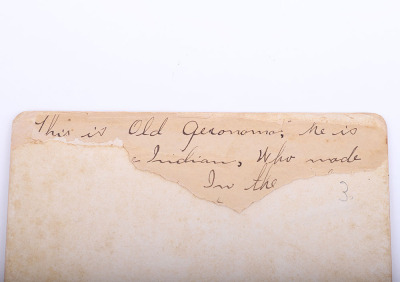 This is Old Geronomo; He is
Indian, Who made
In the
3.